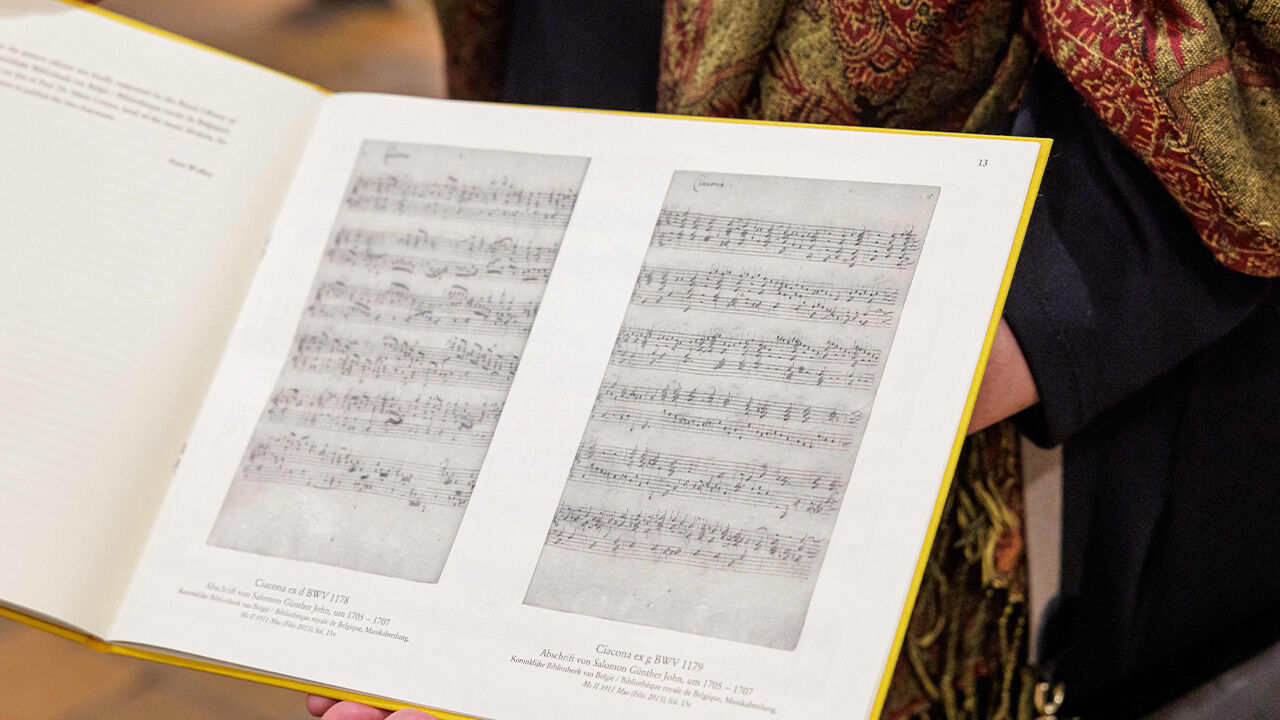 supported by the Royal Library of
Peter Wollny
13
Ciacona
Ciacona ex d BWV 1178
Abschrift von Salomon Günther John, um 1705 – 1707
Koninklijke Bibliotheek van België / Bibliothèque royale de Belgique, Musikabteilung,
Ms II 3911 Mus (Fétis 2013), fol. 13v
Ciacona
15
Ciacona ex g BWV 1179
Abschrift von Salomon Günther John, um 1705 – 1707
Koninklijke Bibliotheek van België / Bibliothèque royale de Belgique, Musikabteilung,
Ms II 3911 Mus (Fétis 2013), fol. 15r